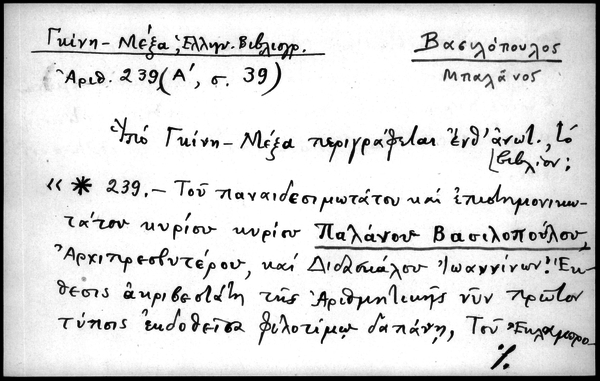 Γκίνη-Μέξα, Ἑλλην. Βιβλιογρ.
Βασιλόπουλος
Ἀριθ. 239 (Α΄, σ. 39)
Μπαλάνος
Ὑπό Γκίνη-Μέξα περιγράφεται ἔνθ' ἀνωτ., τό
βιβλίον:
« * 239. — Τοῦ παναιδεσιμωτάτου καί ἐπιστημονικω-
τάτου κυρίου κυρίου Παλάνου Βασιλοπούλου,
Ἀρχιπρεσβυτέρου, καί Διδασκάλου Ἰωαννίνων: Ἔκ-
θεσις ἀκριβεστάτη τῆς Ἀριθμητικῆς νῦν πρῶτον
τύποις ἐκδοθεῖσα φιλοτίμῳ δαπάνῃ, Τοῦ Ἐκλαμπρο-
./.